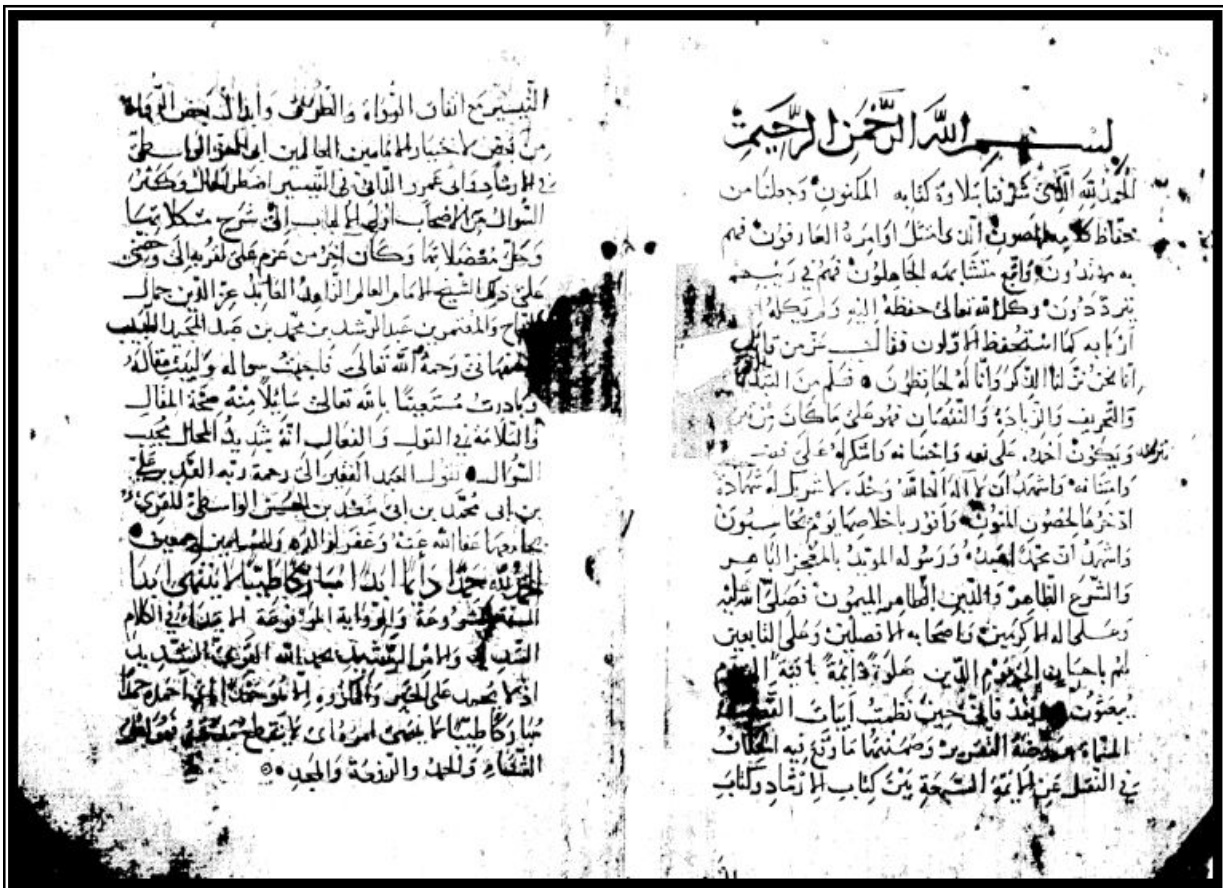 بسم الله الرحمن الرحيم
الحمد لله الذي شرفنا بتلاوة كتابه المكنون وجعلنا من
حفاظ كلامه المصون الذي امتثل اوامره العارفون فهم
به مهتدون واتبع متشابهه الجاهلون فهم في ريبهم
يترددون وكل الله تعالى حفظه اليه ولم يكله
اربابه كما استحفظ الاولون فقال عز من قائل
انا نحن نزلنا الذكر وانا له لحافظون فسلم من التبديل
والتحريف والزيادة والنقصان فهو على ما كان
ويكون احمده على نعمه واحسانه واشكره على
وامتنانه واشهد ان لا اله الا الله وحده لا شريك له شهادة
ادخرها لحصون المنون وافوز باخلاصها يوم يحاسبون
واشهد ان محمدا عبده ورسوله المويد بالمعجز الباهر
والشرع الظاهر والدين الطاهر الميمون فصلى الله عليه
وعلى اله الاكرمين واصحابه الافضلين وعلى التابعين
لهم باحسان الى يوم الدين صلوة دائمة باقية الى يوم
يبعثون وبعد فاني حين نظمت ابيات القصيدة
المسماة بروضة التقرير وضمنتها ما وقع فيه الخلاف
في النقل عن الايمة السبعة بين كتاب الارشاد وكتاب
التيسير مع اتفاق الرواة والطرق وابدال بعض الرواة
من بعض لاختيار الامامين العالمين ابي العز الواسطي
في الارشاد وابي عمرو الداني في التيسير اضطر الحال وكثر
السوال من الاصحاب اولي الالباب الى شرح مشكلاتها
وحل معضلاتها وكان اخر من عزم علي لقربه الي وحضني
على ذلك الشيخ الامام العالم الزاهد العابد عز الدين جمال
والمفتمر بن عبد الرشيد بن محمد بن عبد المجيد الخطيب
رحمه الله تعالى فاجبت سواله ولبيت مقاله
وبادرت مستعينا بالله تعالى سائلا منه صحة المقال
والسلامة في القول والفعال انه شديد المحال مجيب
السوال فنقول العبد الفقير الى رحمة ربه القدير علي
بن ابي محمد بن ابي سعد بن الحسن الواسطي المقرئ
عفا الله عنه وغفر لوالديه وللمسلمين اجمعين
الحمد لله حمدا دائما ابدا مباركا طيبا لا ينتهي ابدا
السنة المشروعة والرواية المرفوعة الابتداء في الكلام
السديد والامر الرشيد بحمد الله القوي الشديد
اذ لا يحمد على الخير والمكروه الا هو احمده حمدا
مباركا طيبا لا ينتهي امره اي لا ينقطع
الثناء والحمد والرفعة والمجد